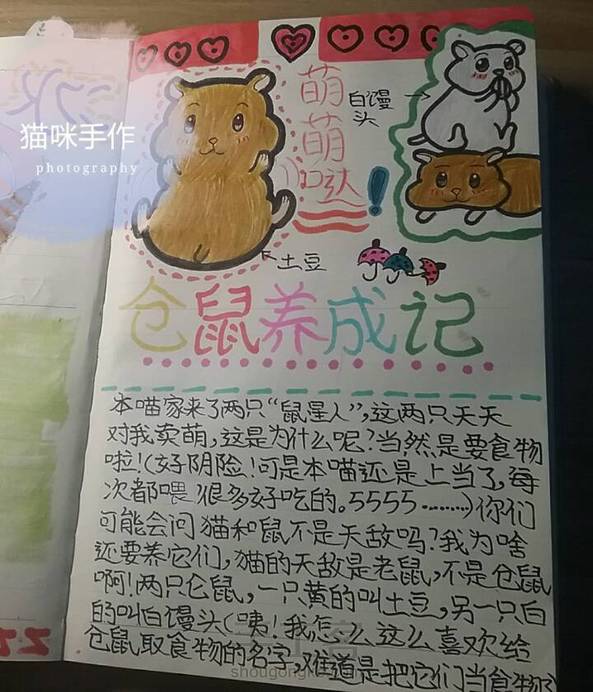 猫咪手作
photography
萌萌哒!
白馒头
土豆
仓鼠养成记
本喵家来了两只“鼠星人”,这两只天天
对我卖萌,这是为什么呢?当然是要食物
啦!(好阴险!可是本喵还是上当了,每
次都喂很多好吃的。5555………)你们
可能会问猫和鼠不是天敌吗?我为啥
还要养它们,猫的天敌是老鼠,不是仓鼠
啊!两只仑鼠,一只黄的叫土豆,另一只白
的叫白馒头(咦!我怎么这么喜欢给
仓鼠取食物的名字,难道是把它们当食物了